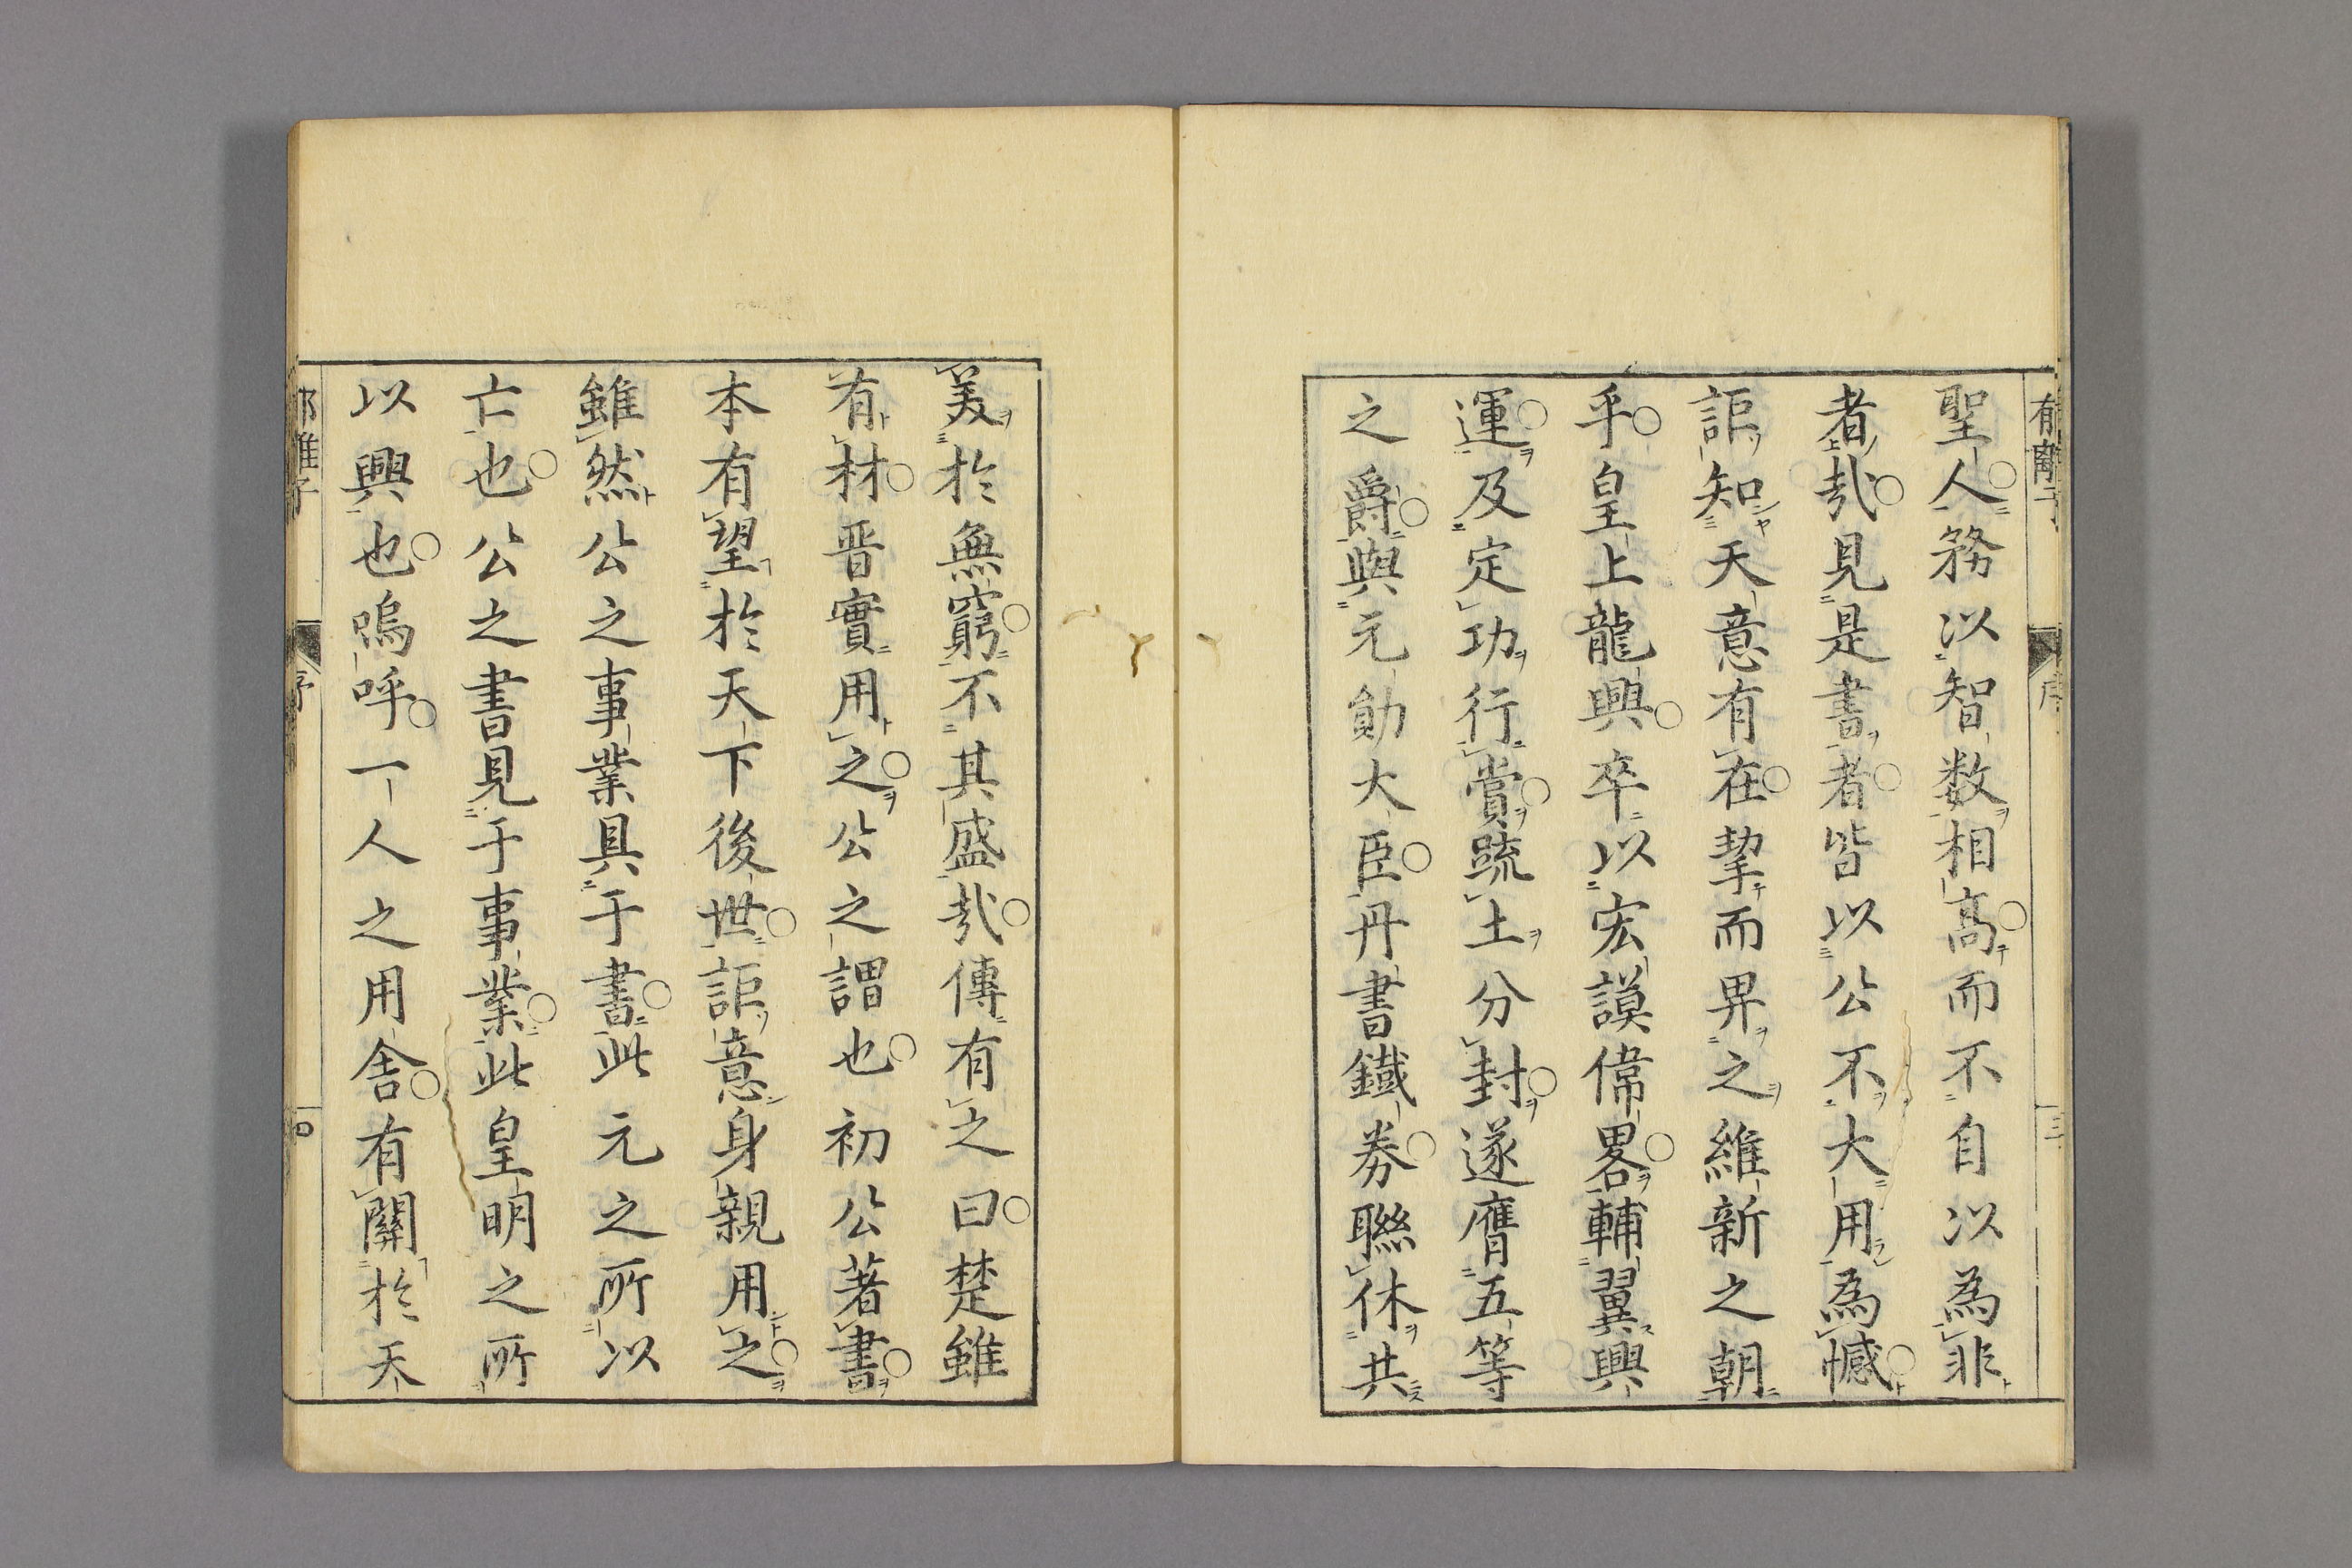 郁離子 序 三
聖人務以智数相高而不自以為非
者哉見是書者皆以公不大用為憾
詎知天意有在挈而畀之維新之朝
乎皇上龍興卒以宏謨偉畧輔翼興
運及定功行賞䟽土分封遂膺五等
之爵與元勛大臣丹書鐵券聯休共
美於無窮不其盛哉傳有之曰楚雖
有材晋實用之公之謂也初公著書
本有望於天下後世詎意身親用之
雖然公之事業具于書此元之所以
亡也公之書見于事業此皇明之所
以興也嗚呼一人之用舍有關於天
郁離子 序 四